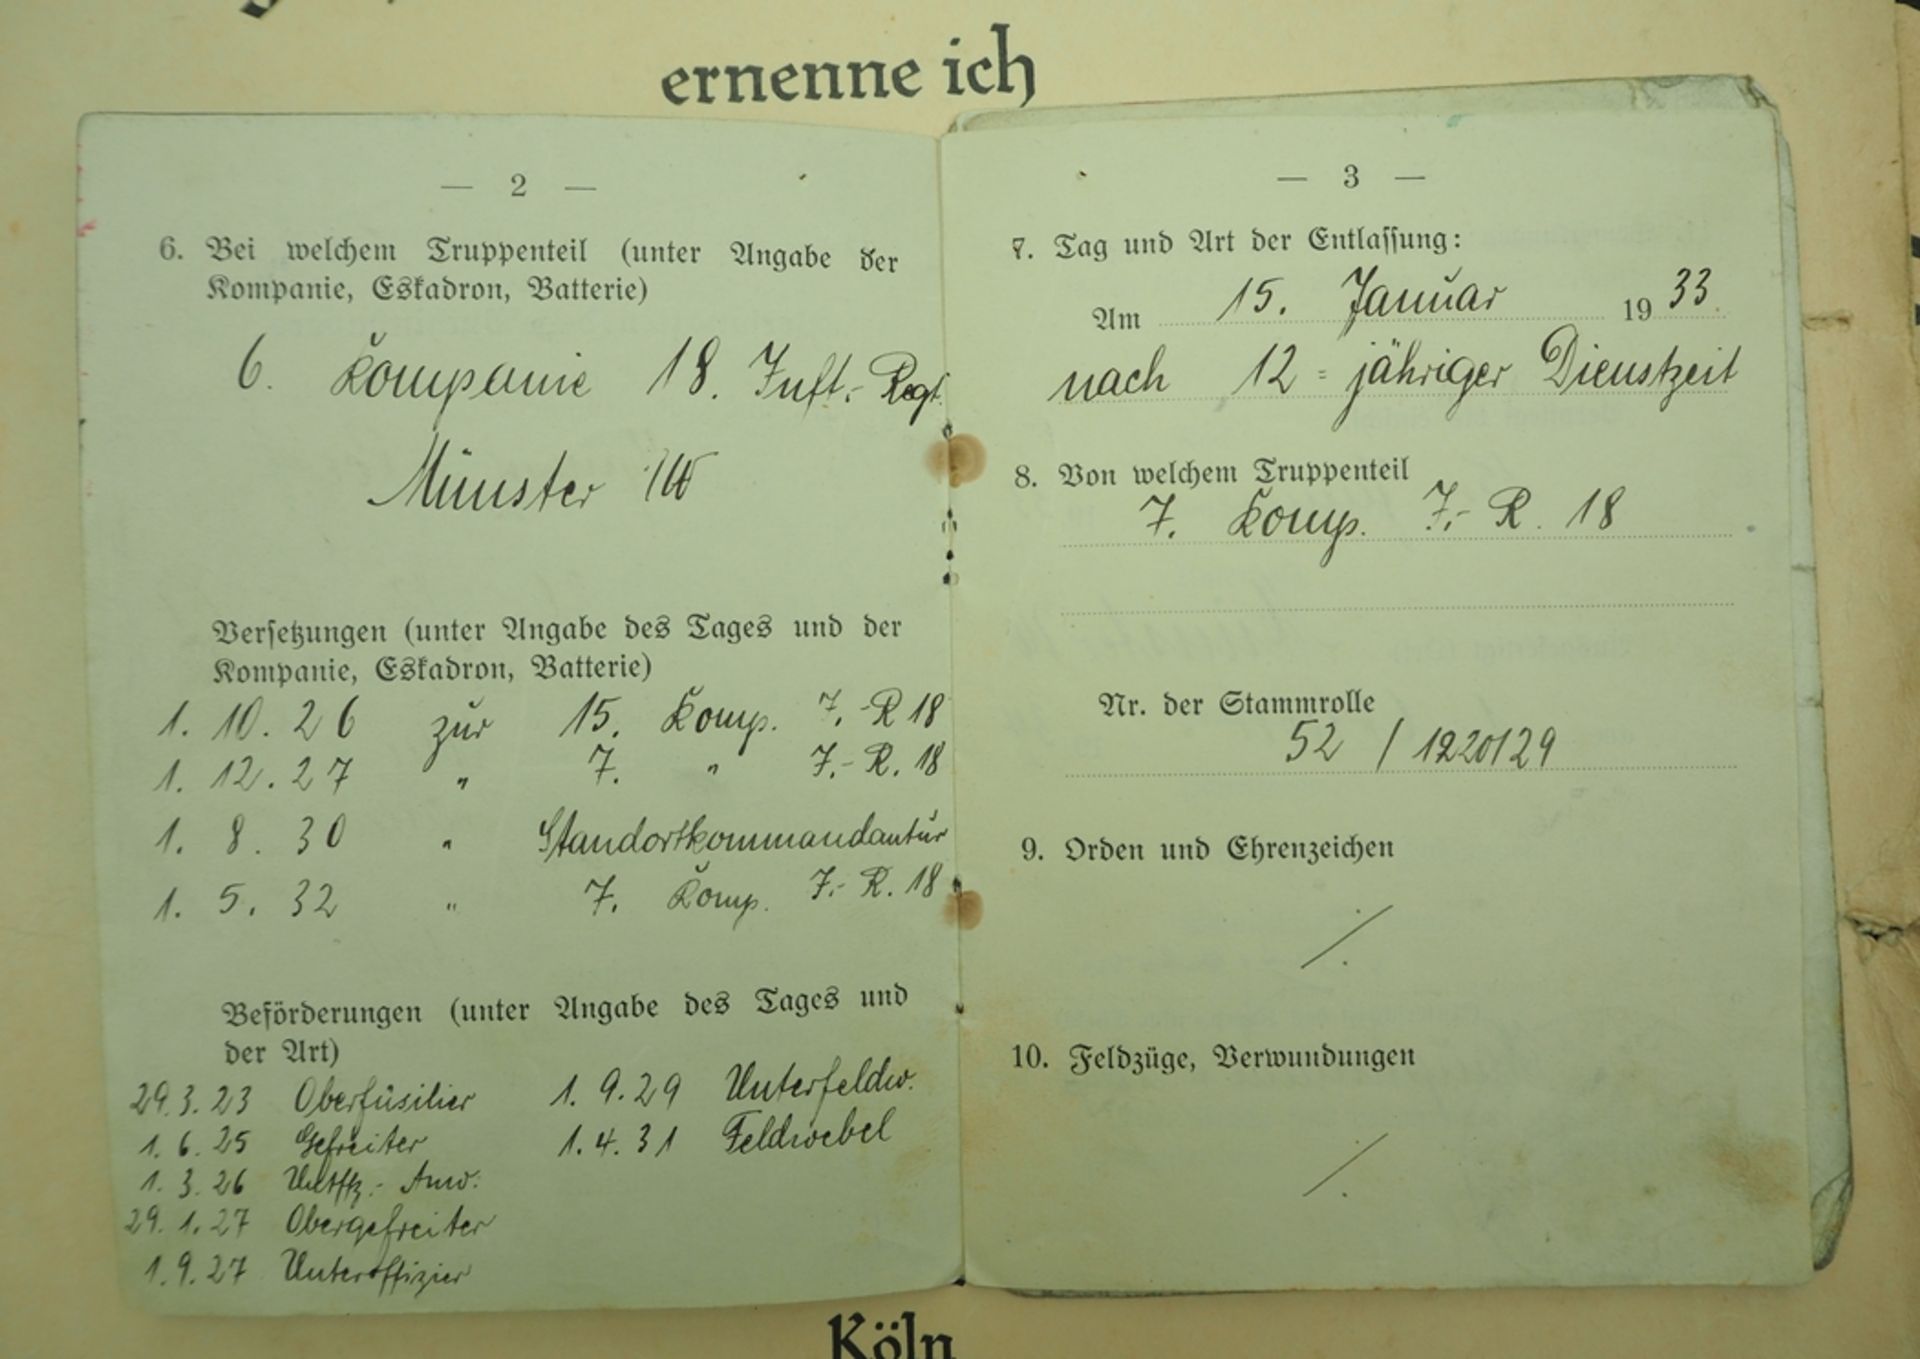 ernenne ich
— 2 —
6. Bei welchem Truppenteil (unter Angabe der
Kompanie, Eskadron, Batterie)
6. Kompanie 18. Inft.- Regt.
Münster i/W
Versetzungen (unter Angabe des Tages und der
Kompanie, Eskadron, Batterie)
1. 10. 26 zur 15. Komp. I.-R 18
1. 12. 27 " 7. " I.-R. 18
1. 8. 30 " Standortkommandantur
1. 5. 32 " 7. Komp. I.-R. 18
Beförderungen (unter Angabe des Tages und
der Art)
29.3.23 Oberfüsilier 1. 9.29 Unterfeldw.
1. 6. 25 Gefreiter 1. 4. 31 Feldwebel
1. 3. 26 Untffz.- Anw.
29. 1. 27 Obergefreiter
1. 9. 27 Unteroffizier
— 3 —
7. Tag und Art der Entlassung:
Am 15. Januar 1933.
nach 12 = jähriger Dienstzeit
8. Von welchem Truppenteil
7. Komp. I.- R. 18
Nr. der Stammrolle
52 / 1220/29
9. Orden und Ehrenzeichen
/.
10. Feldzüge, Verwundungen
/.
Köln